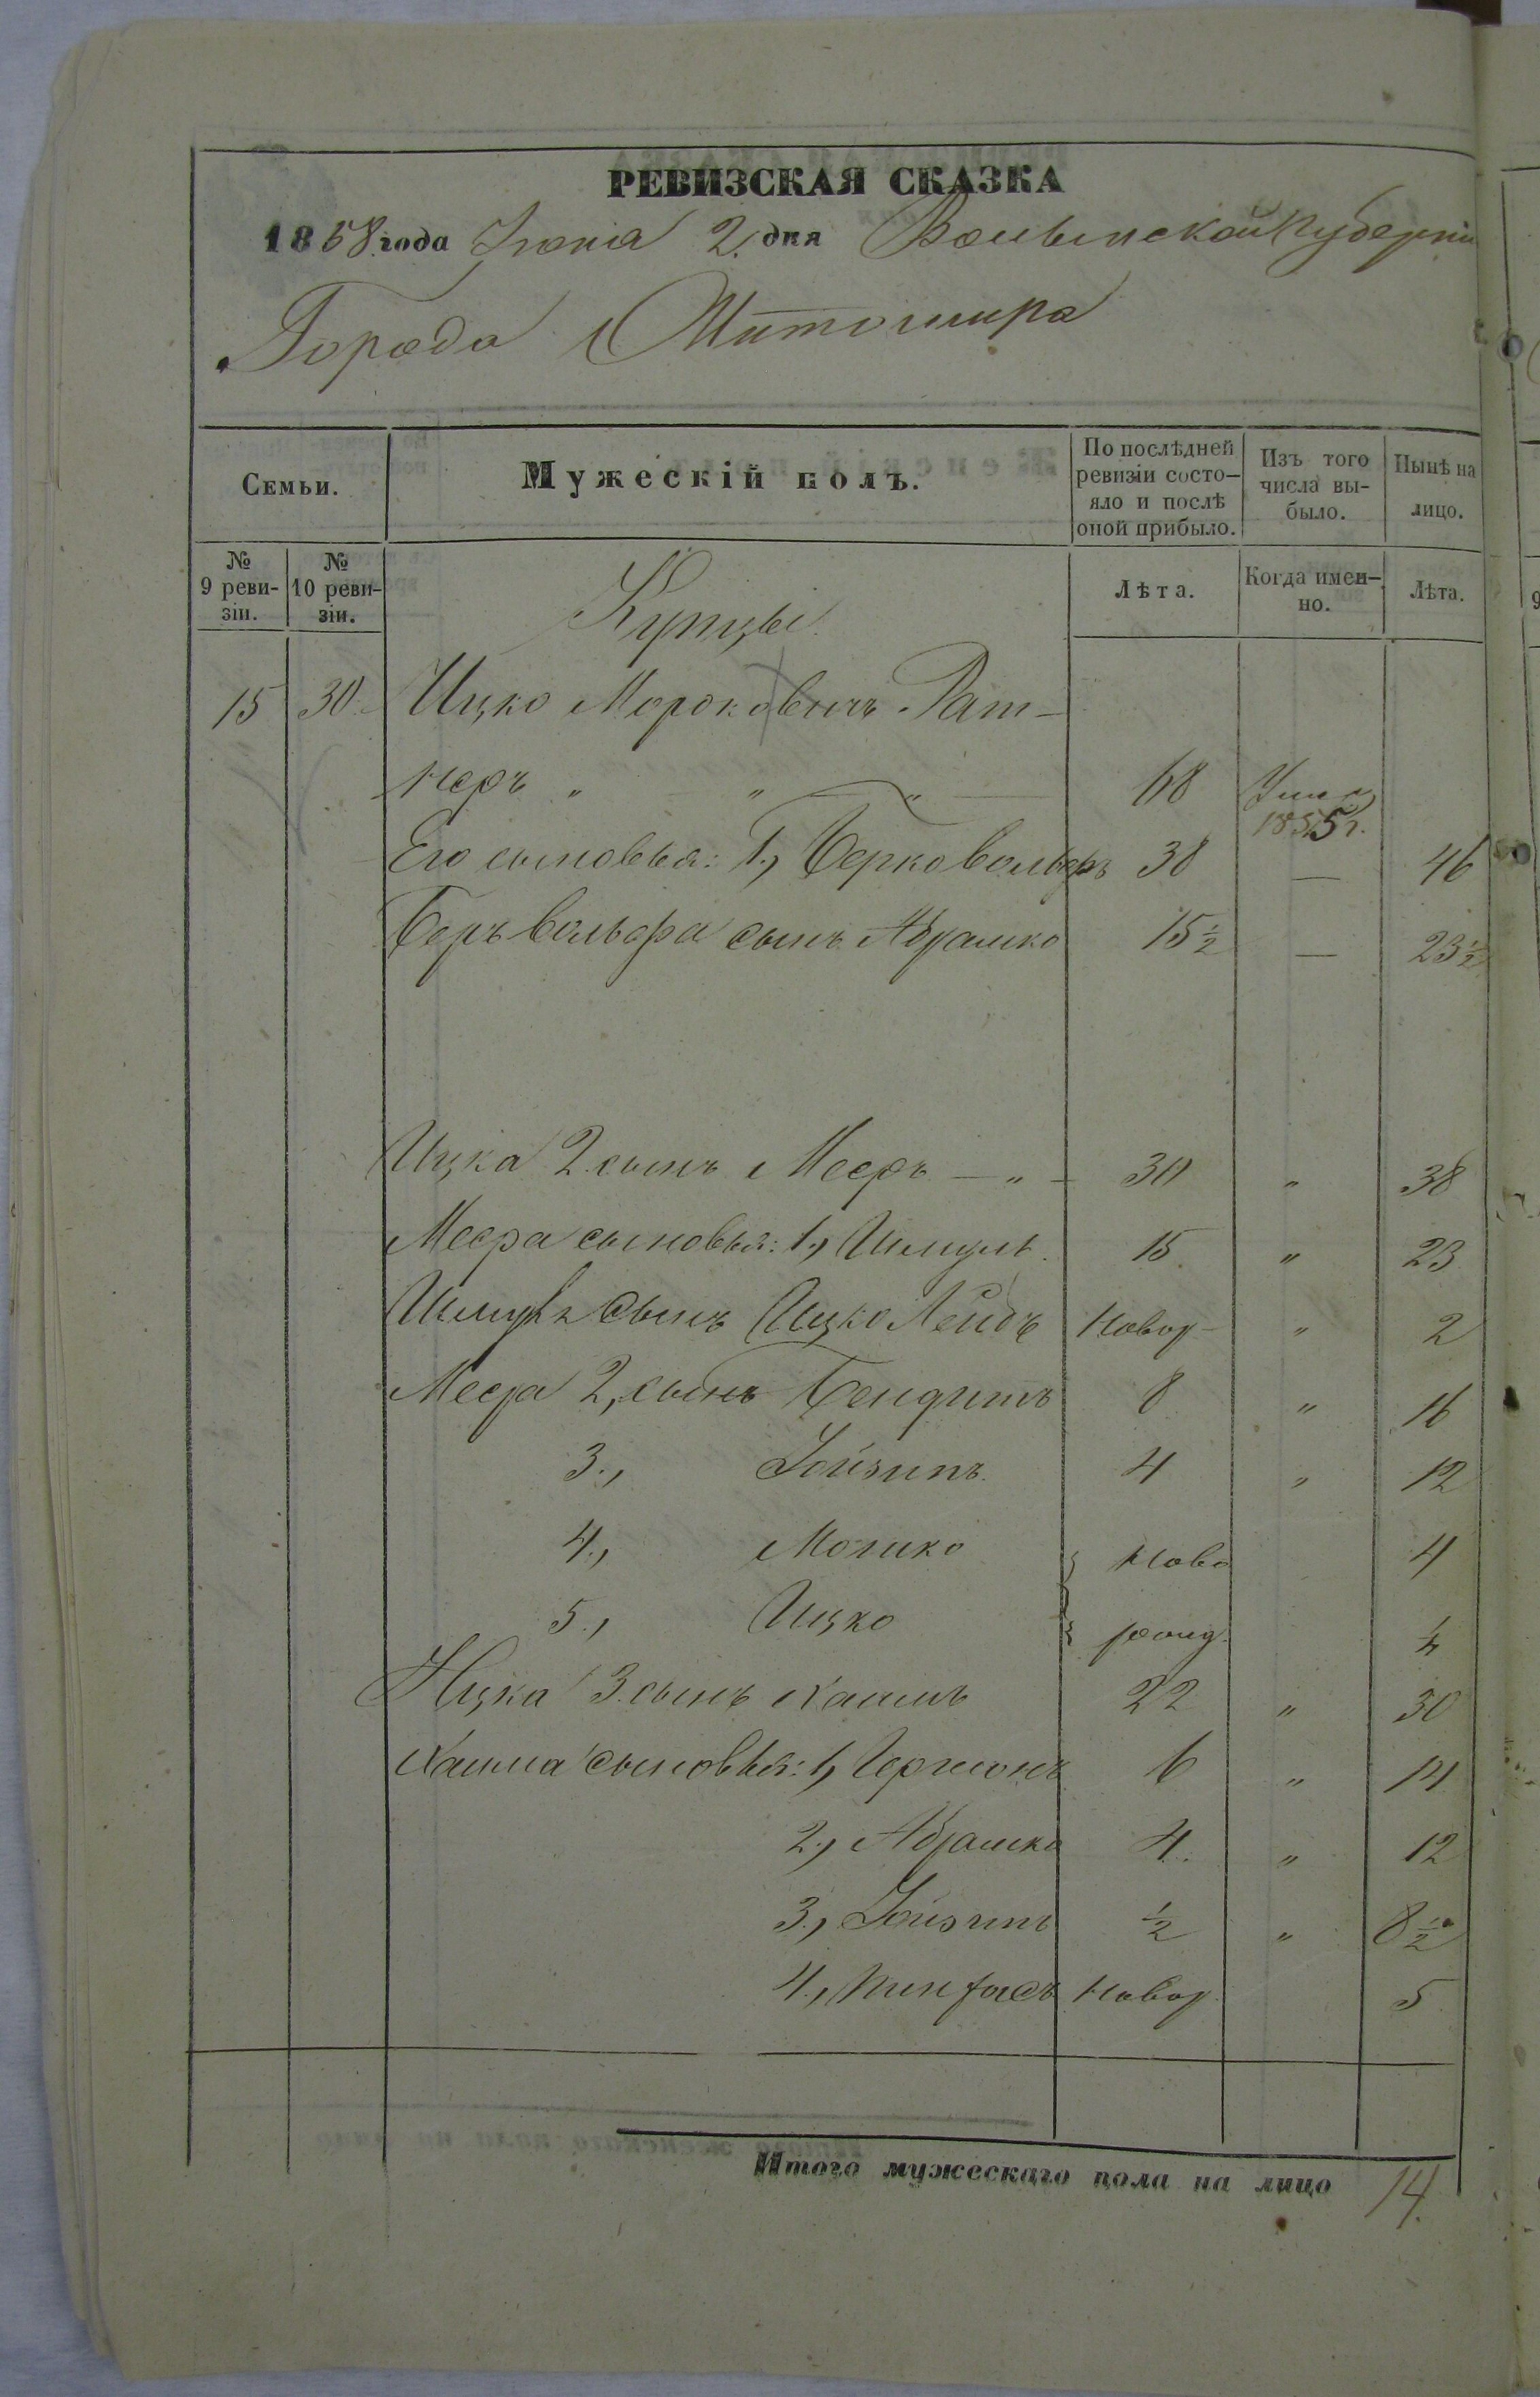 РЕВИЗСКАЯ СКАЗКА
1858 года Іюня 2 дня Волынской Губерніи
Города Житомира
Семьи.
Мужескій полъ.
По послѣдней ревизіи состо-
яло и послѣ
оной прибыло.
Изъ того
числа вы-
было.
Нынѣ на
лицо.
№
9 реви-
зіи.
№
10 реви-
зіи.
Купцы
Лѣта.
Когда имен-
но.
Лѣта.
15 30 Ицко Морковичъ Рат-
неръ " " " 68 Умеръ 1855 г.
Его сыновья: 1., Берко Вольфъ 38 — 46
Беръ Вольфа сынъ Абрамко 15½ — 23½
Ицка 2 сынъ Мееръ — " — 30 " 38
Меера сыновья: 1., Шмуль 15 " 23
Шмуля сынъ Ицко Лейбъ новор- " 2
Меера 2, сынъ Бендитъ 8 " 16
3., Зойзипъ 4 " 12
4., Мошко ново 4
5., Ицко рожд. ½
Ицка 3 сынъ Хаимъ 22 " 30
Хаима сыновья: 1, Гершонъ 6 " 14
2., Абрамко 4. " 12
3., Зойзипъ ½ " 8½
4., Пинхасъ новор 5
Итого мужескаго пола на лицо 14.